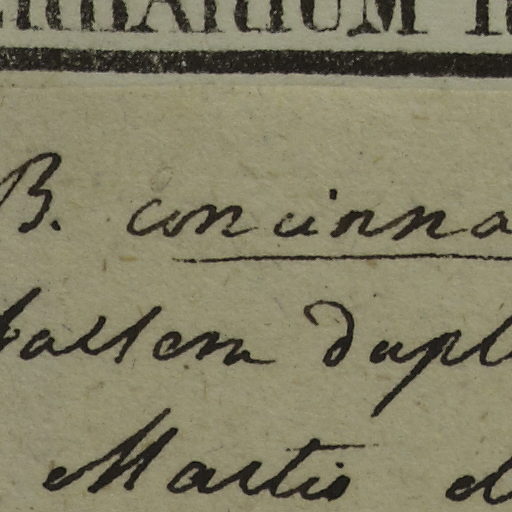 HERBARIUM
B. concinna
saltem dupl
Martio